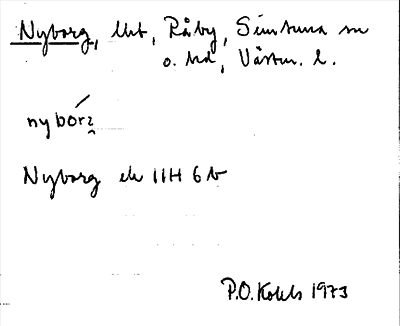 Nyborg, lht, Råby, Simtuna sn
o. hd, Västm. l.
nybórʒ
Nyborg ek 11H 6b
P.O. Kolds 1973